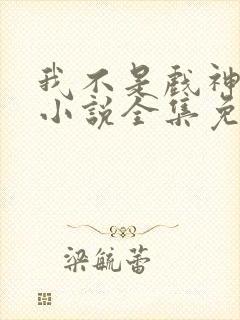 我不是戏神
小说全集免
梁毓蕾